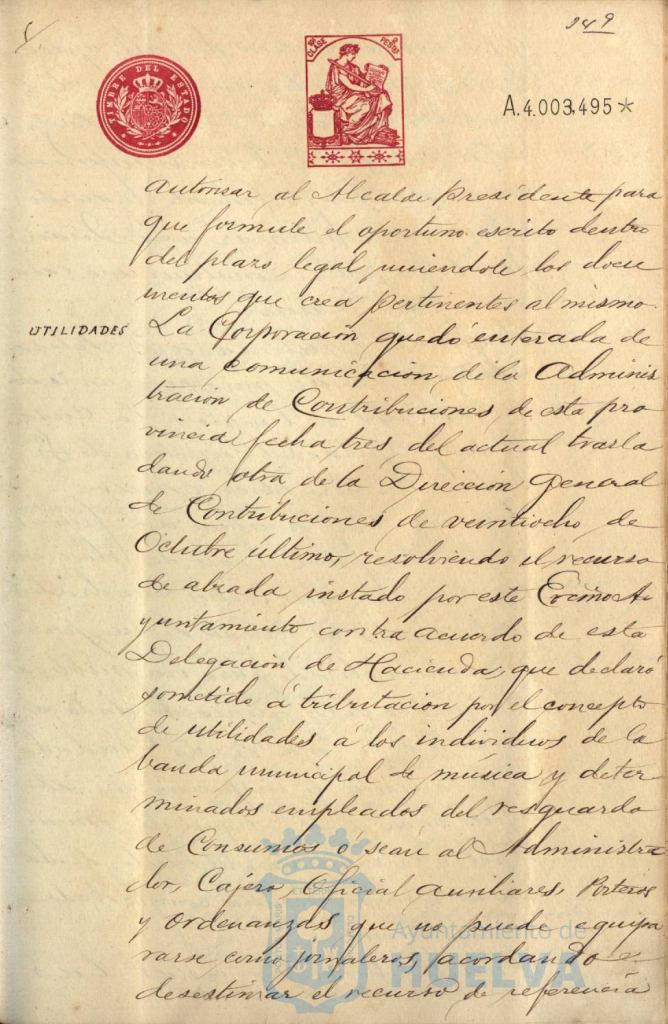 249
TIMBRE DEL ESTADO
10ª CLASE 2 PESTAS
A.4.003,495*
autorisar al Alcalde Presidente para
que formule el oportuno escrito dentro
del plazo legal uniendole los docu
mentos que crea pertinentes al mismo.
UTILIDADES
La Corporación quedó enterada de
una comunicación de la Adminis
tracion de Contribuciones de esta pro
vincia fecha tres del actual trasla
dando otra de la Dirección general
de Contribuciones de veintiocho de
Octubre último, resolviendo el recurso
de alzada instado por este Excmo A
yuntamiento contra acuerdo de esta
Delegación de Hacienda, que declaró
sometido á tributacion por el concepto
de utilidades á los individuos de la
banda municipal de música y deter
minados empleados del resguardo
de Consumos ó sean al Administra
dor, Cajero, Oficial auxiliares, Porteros
y ordenanzas que no puede equipa
rarse como jornaleros, acordando
desestimar el recurso de referencia
Ayuntamiento de
HUELVA